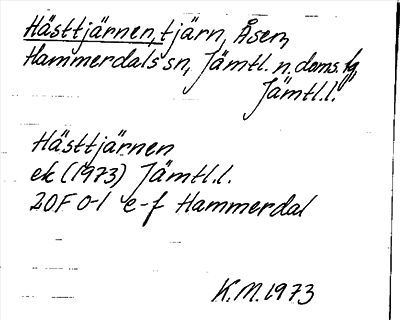 Hästtjärnen, tjärn, Åsen,
Hammerdals sn, Jämtl. n. doms. tg,
Jämtl.l.
Hästtjärnen
ek (1973) Jämtl.l.
20F 0-1 e-f Hammerdal
K.M. 1973